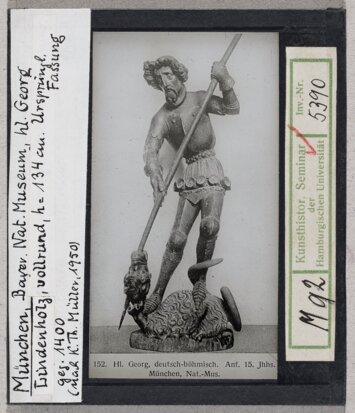 München, Bayer. Nat. Museum, hl. Georg
Lindenholz, vollrund, h= 134 cm. Ursprüngl.
Fassung
geg. 1400
(nach K. Th. Müller, 1950)
152. Hl. Georg, deutsch-böhmisch. Anf. 15. Jhhs.
München, Nat.-Mus.
Kunsthistor. Seminar
der
Hamburgischen Universität
Inv.-Nr.
5390
M92